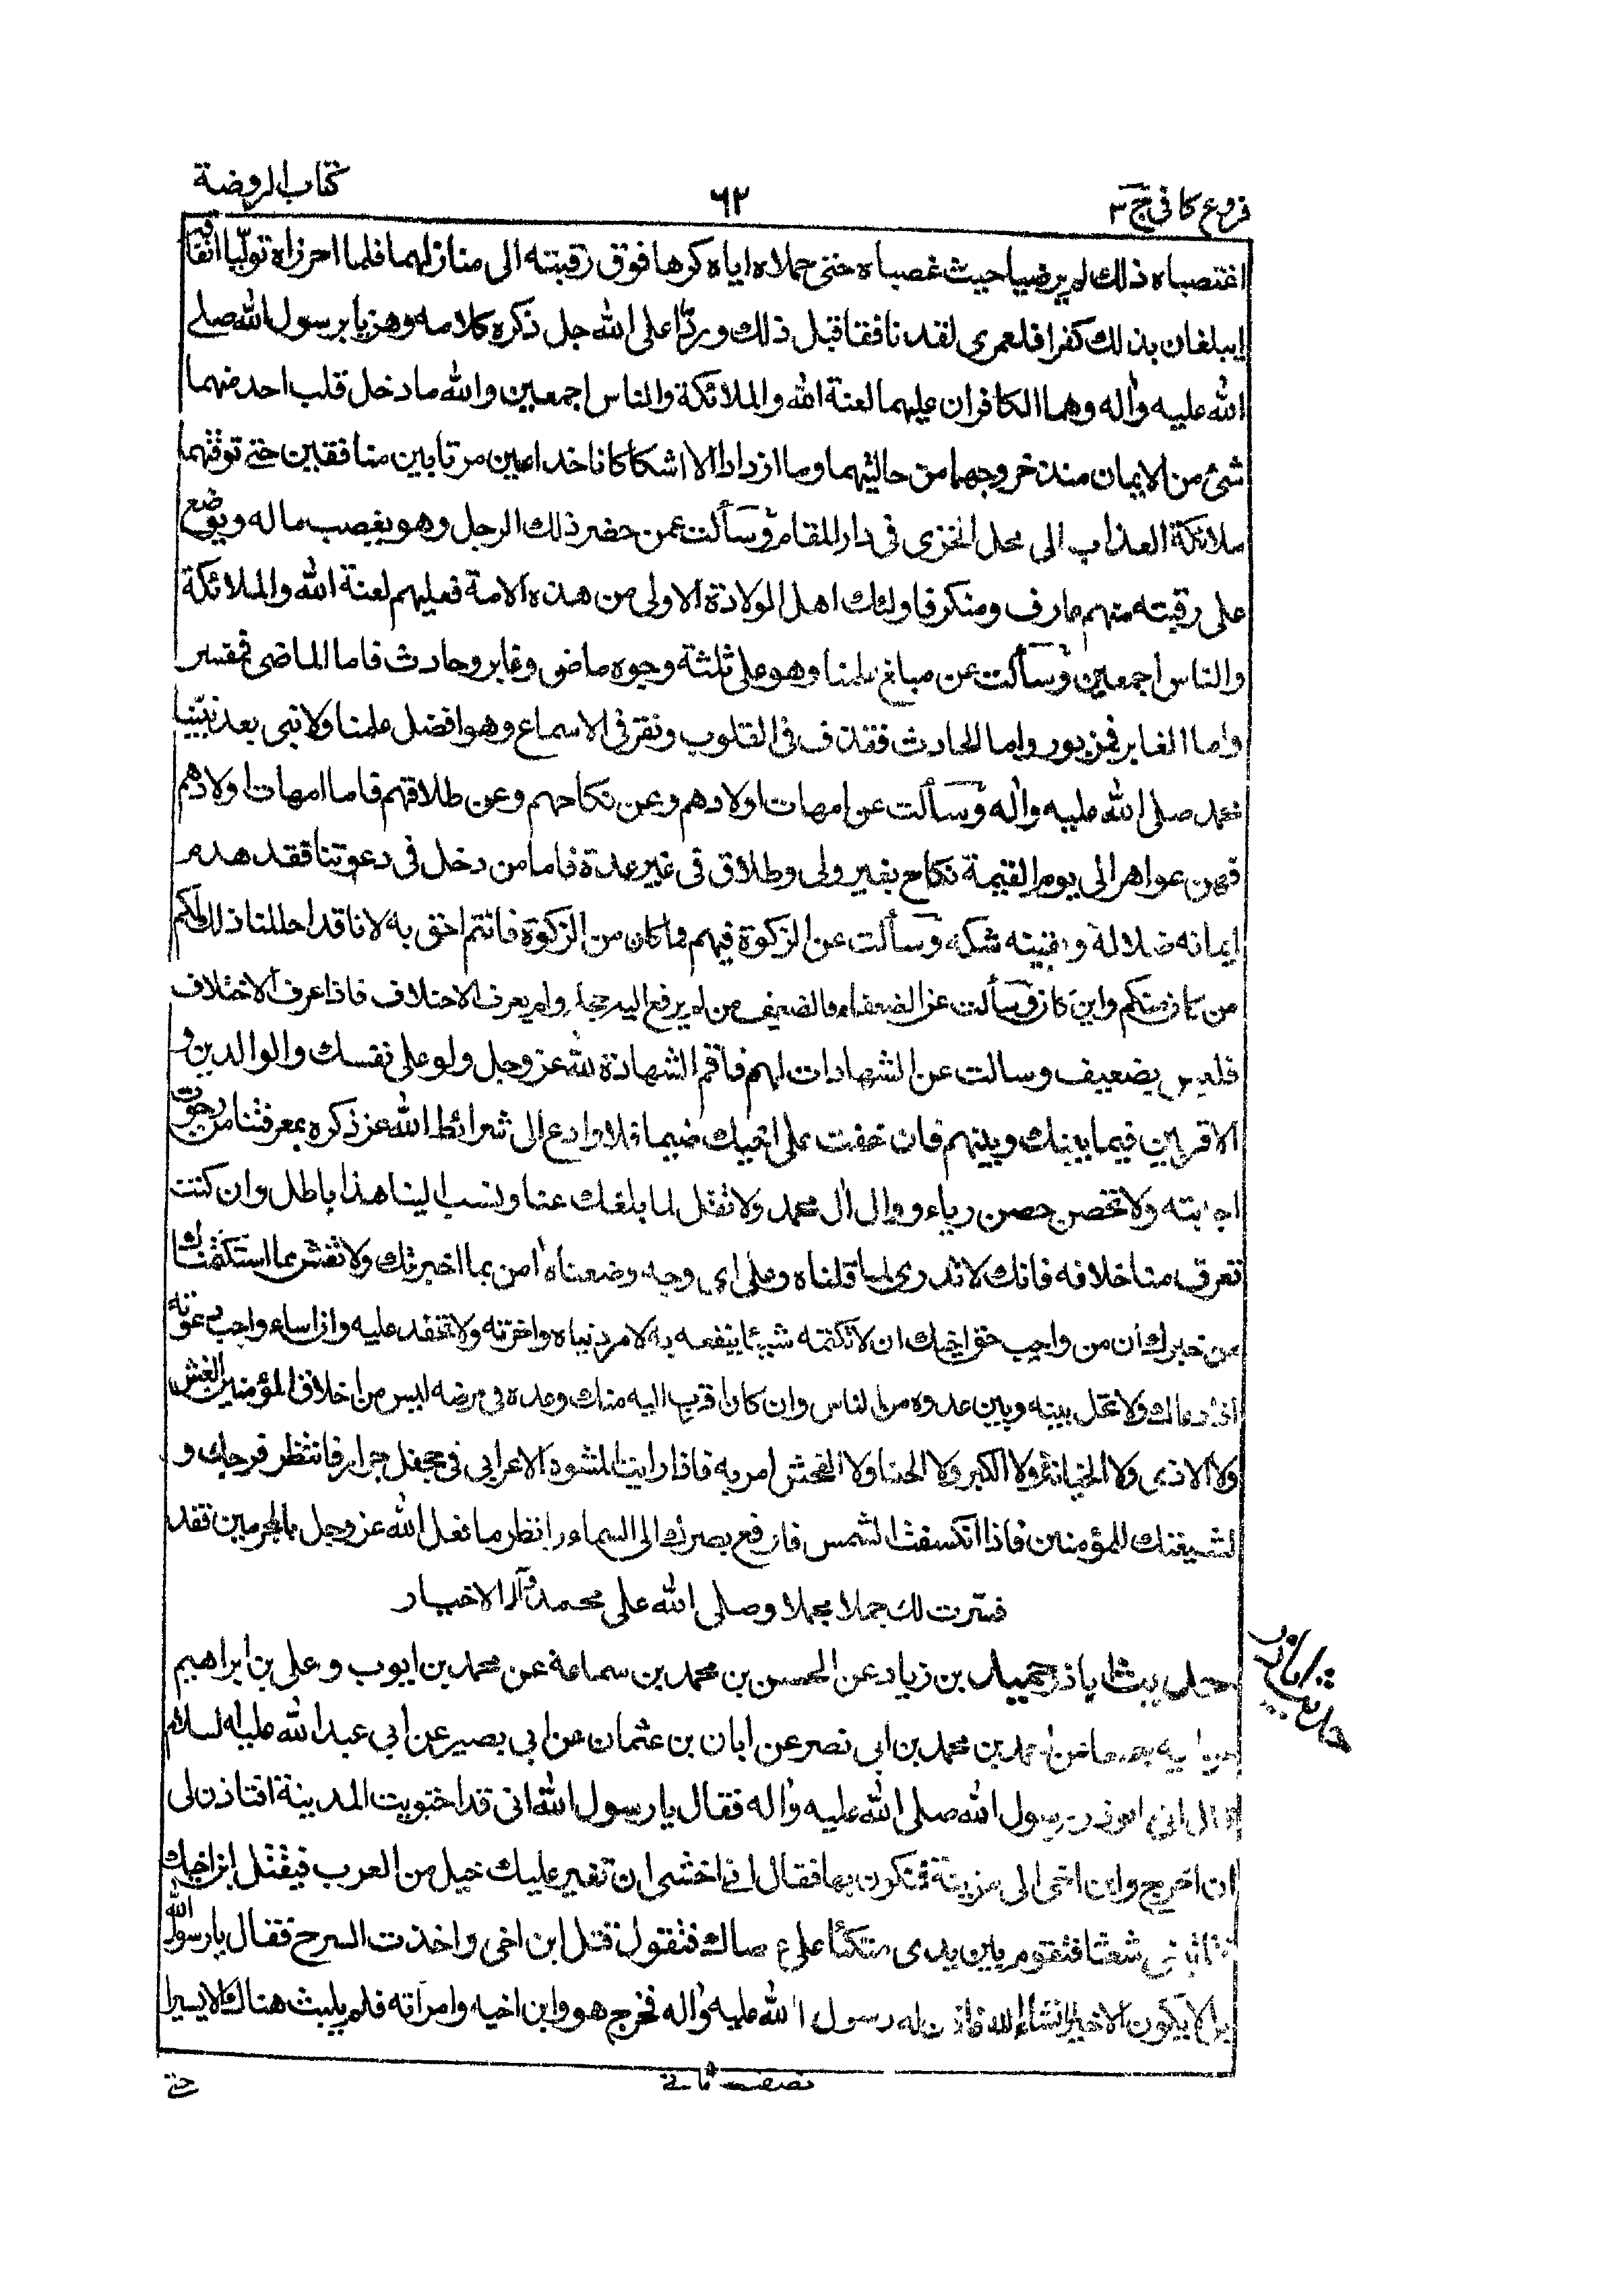 فروع كافى ج ٣
٦٢
كتاب الروضة
اغتصباه ذلك لم يرضيا حيث غصباه حتى حملاه اياه كرها فوق رقبته الى منازلهما فلما احرزاه توليا انفاقه
ايبلغان بذلك كفرا فلعمرى لقد نافقا قبل ذلك وردّا على الله جل ذكره كلامه وهزيا برسول الله صلى
الله عليه وآله وهما الكافران عليهما لعنة الله والملائكة والناس اجمعين والله ما دخل قلب احد منهما
شئ من الايمان منذ خروجهما من حالتيهما وما ازدادا الا شكا كانا خداعين مرتابين منافقين حتى توفتهما
ملائكة العذاب الى محل الخزى فى دار المقام وسألت عمن حضر ذلك الرجل وهو يغصب ماله ويوضع
على رقبته منهم عارف ومنكر فاولئك اهل الولادة الاولى من هذه الامة فعليهم لعنة الله والملائكة
والناس اجمعين وسألت عن مبلغ علمنا وهو على ثلثة وجوه ماض وغابر وحادث فاما الماضى فمفسر
واما الغابر فمزبور واما الحادث فقذف فى القلوب ونقر فى الاسماع وهو افضل علمنا ولا نبى بعد نبيّنا
محمد صلى الله عليه وآله وسألت عن امهات اولادهم وعن نكاحهم وعن طلاقهم فاما امهات اولادهم
فهن عواهر الى يوم القيمة نكاح بغير ولى وطلاق فى غير عدة فاما من دخل فى دعوتنا فقد هدم
ايمانه ضلالة ويقينه شكه وسألت عن الزكوة فيهم فما كان من الزكوة فانتم احق به لانا قد احللنا ذلك لكم
من كان منكم واين كان وسألت عن الضعفاء فالضعيف من لم يرفع اليه حجة ولم يعرف الاختلاف فاذا عرف الاختلاف
فليس بضعيف وسالت عن الشهادات لهم فاقم الشهادة لله عز وجل ولو على نفسك والوالدين و
الاقربين فيما بينك وبينهم فان خفت على اخيك ضيما فلا وادع الى شرائط الله عز ذكره بمعرفتنا من رجوت
اجابته ولا تحصن حصن رياء ووال آل محمد ولا تقل لما بلغك عنا ونسب الينا هذا باطل وان كنت
تعرف منا خلافه فانك لا تدرى لما قلناه وعلى اى وجه وضعناه آمن بما اخبرتك ولا تفش ما استكتمناك
من خبرك ان من واجب حق اخيك ان لا تكتمه شيئا ينفعه به لامر دنياه واخرته ولا تحقد عليه وان اساء واجب دعوته
اذا دعاك ولا تخل بينه وبين عدوه من الناس وان كان اقرب اليه منك وعده فى مرضه ليس من اخلاق المؤمنين الغش
ولا الاذى ولا الخيانة ولا الكبر ولا الخنا ولا الفحش امر به فاذا رايت المشوه الاعرابى فى جحفل جرار فانتظر فرجك و
لشيعتك المؤمنين فاذا انكسفت الشمس فارفع بصرك الى السماء وانظر ما فعل الله عز وجل بالمجرمين فقد
فسّرت لك جملا مجملا وصلى الله على محمد وآله الاخيار
حديث اباذر حميد بن زياد عن الحسن بن محمد بن سماعة عن محمد بن ايوب وعلى بن ابراهيم
عن ابيه جميعا عن احمد بن محمد بن ابى نصر عن ابان بن عثمان عن ابى بصير عن ابى عبد الله عليه السلام
قال اتى ابوذر رسول الله صلى الله عليه وآله فقال يا رسول الله انى قد اجتويت المدينة افتاذن لى
ان اخرج وابن اخى الى مزينة فنكون بها فقال انى اخشى ان تغير عليك خيل من العرب فيقتل ابن اخيك
فتاتينى شعثا فتقوم بين يدى متكئا على عصاك فتقول قتل ابن اخى واخذت السرح فقال يا رسول الله
بل لا يكون الا خيرا انشاء الله فاذن له رسول الله عليه وآله فخرج هو وابن اخيه وامراته فلم يلبث هناك الا يسيرا
نصف ثانى
حتى